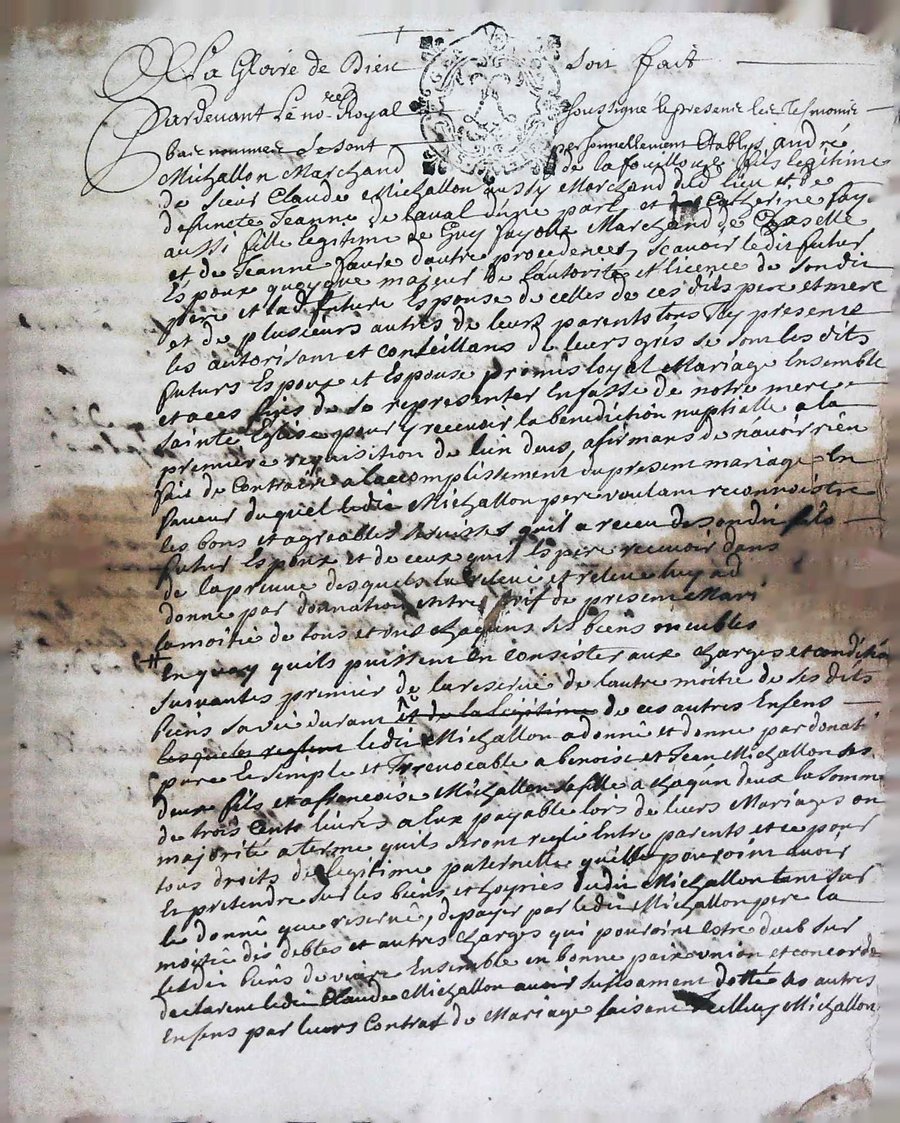 A la Gloire de Dieu soit fait
Pardevant le no.re Royal soussigné le presents les tesmoins
bas nommes se sont personnellement Etablys andré
Michallon Marchand de la fouillouse fils legitime
de sieur Claude Michallon aussy Marchand dud lieu et de
defuncte Jeanne de laval d'une part et Catherine fay
aussi fille legitime de Guy fayolle Marchand de Chaselle
et de Jeanne faure d'autre procedences, scavoir ledit futur
Espoux quoyque majeur de l'autorité et licence de son dit
pere et lad future Espouse de celles de ces dits pere et mere
et de plusieurs autres de leurs parents tous icy presents
les autorisant et conseillans de leurs grés se sont les dits
futurs Espoux et Espouse promis loyal Mariage Ensemble
et a ces fins de se representer En fasse de notre mere
sainte Eglise pour y recevoir la benediction nuptialle a la
premiere requisition de l'un deus, afirmans de n'avoir rien
fait de Contraire a l'accomplissement du present mariage En
faveur duquel ledit Michallon pere voulant reconnoistre
les bons et agreables services qu'il a receu de son dit fils
futur Espoux et de ceux qu'il Espere recevoir dans
de la preuve desquels la relevé et releve
donne par donnation entre vifs de present
la moitié de tous et uns chaquns ses biens meubles
En quoy qu'ils puissent En consister aux charges et conditi
suivantes premier de la reserve de l'autre moitié de ses dits
biens sa vie durant et de la legitime de ces autres Enfens
lesqueles ledit Michallon a donné et donne par donati
pure et simple et Irrevocable a benoist et Jean Michallon ses
deux fils et a francoise Michallon sa fille a chaqun deux la somme
de trois Cents livres a eux payable lors de leurs Mariages ou
majorité a terme qu'ils seront reglé Entre parents et ce pour
tous droits de legitime paternelle qu'elle pouroint avoir
Et pretendre sur les biens et hoyries dudit Michallon tant sur
le donné que reservé, de payer par ledit Michallon pere la
moitié des debtes et autres charges qui pouroint estre deub sur
lesdit biens de vivre Ensemble en bonne paix union et concorde
declarent ledit Claude Michallon avoir sufisament dotté ses autres
Enfens par leurs Contrat de Mariage faisant Michallon